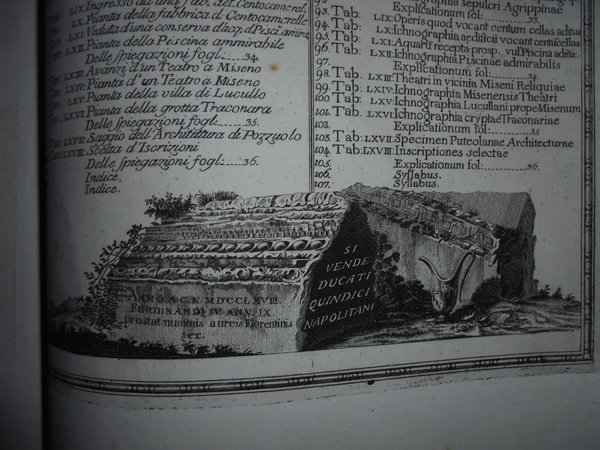 LIX. Ingresso ad una Tab. det. Centocamerel.
LX. Pianta della fabbrica d. Centocamerelle
LXI. Veduta d'una conserva d'acq. d. Pisci. amira.
LXII. Pianta della Piscina ammirabile
Delle spiegazioni fogl:......34.
LXIII. Avanzi d'un Teatro a Miseno
LXIV. Pianta d'un Teatro a Miseno
LXV. Pianta della villa di Lucullo
LXVI. Pianta della grotta Traconara
Delle spiegazioni fogl:......35.
LXVII. Saggio dell'Architettura di Pozzuolo
LXVIII. Scelta d'Iscrizioni
Delle spiegazioni fogl:......36.
Indice.
Indice.
sepulcri Agrippinae
Explicationum fol:......33.
Tab: LIX. Operis quod vocant centum cellas aditus
94. Tab: LX. Ichnographia aedificii vocant centũcellas
95. Tab: LXI. Aquarũ recepta. prosp. vul Piscina adita:
96. Tab: LXII. Ichnographia Piscinae admirabilis
97. Explicationum fol:......34
98. Tab: LXIII. Theatri in vicinia Miseni Reliquiae
99. Tab: LXIV. Ichnographia Misenensis Theatri
100. Tab: LXV. Ichnographia Lucullani prope Misenum
101. Tab: LXVI. Ichnographia cryptae Traconariae
102. Explicationum fol:......35
103. Tab: LXVII. Specimen Puteolanae Architecturae
104. Tab: LXVIII. Inscriptiones selectae
105. Explicationum fol:......36.
106. Syllabus.
107. Syllabus.
ANNO A C. N. MDCCLXVIII.
FERDINANDI IV. ANN. IX.
prostat nummis aureis Florentinis
sex.
SI
VENDE
DUCATI
QUINDICI
NAPOLITANI